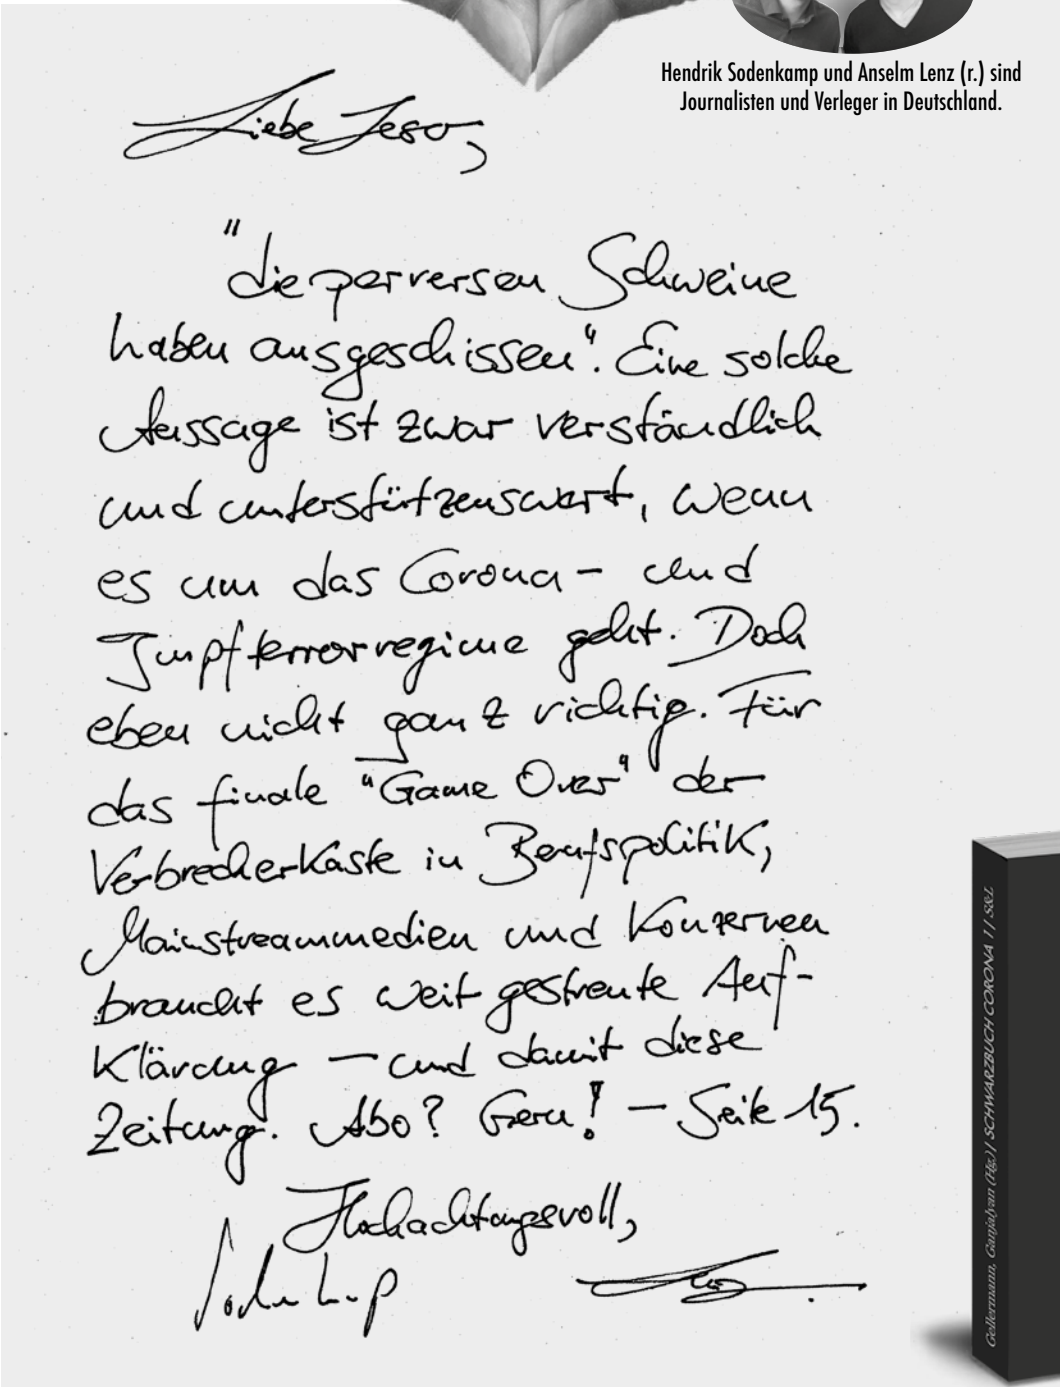 Hendrik Sodenkamp und Anselm Lenz (r.) sind
Journalisten und Verleger in Deutschland.
Liebe Leser,
"die perversen Schweine
haben ausgeschissen". Eine solche
Aussage ist zwar verständlich
und unterstützenswert, wenn
es um das Corona- und
Impfterrorregime geht. Doch
eben nicht ganz richtig. Für
das finale "Game Over" der
Verbrecherkaste in Berufspolitik,
Mainstreammedien und Konzernen
braucht es weit gestreute Auf-
klärung – und damit diese
Zeitung. Abo? Gern! – Seite 15.
Hochachtungsvoll,
Gellermann, Ganjalyan (Hg.) / SCHWARZBUCH CORONA 1 / S&L